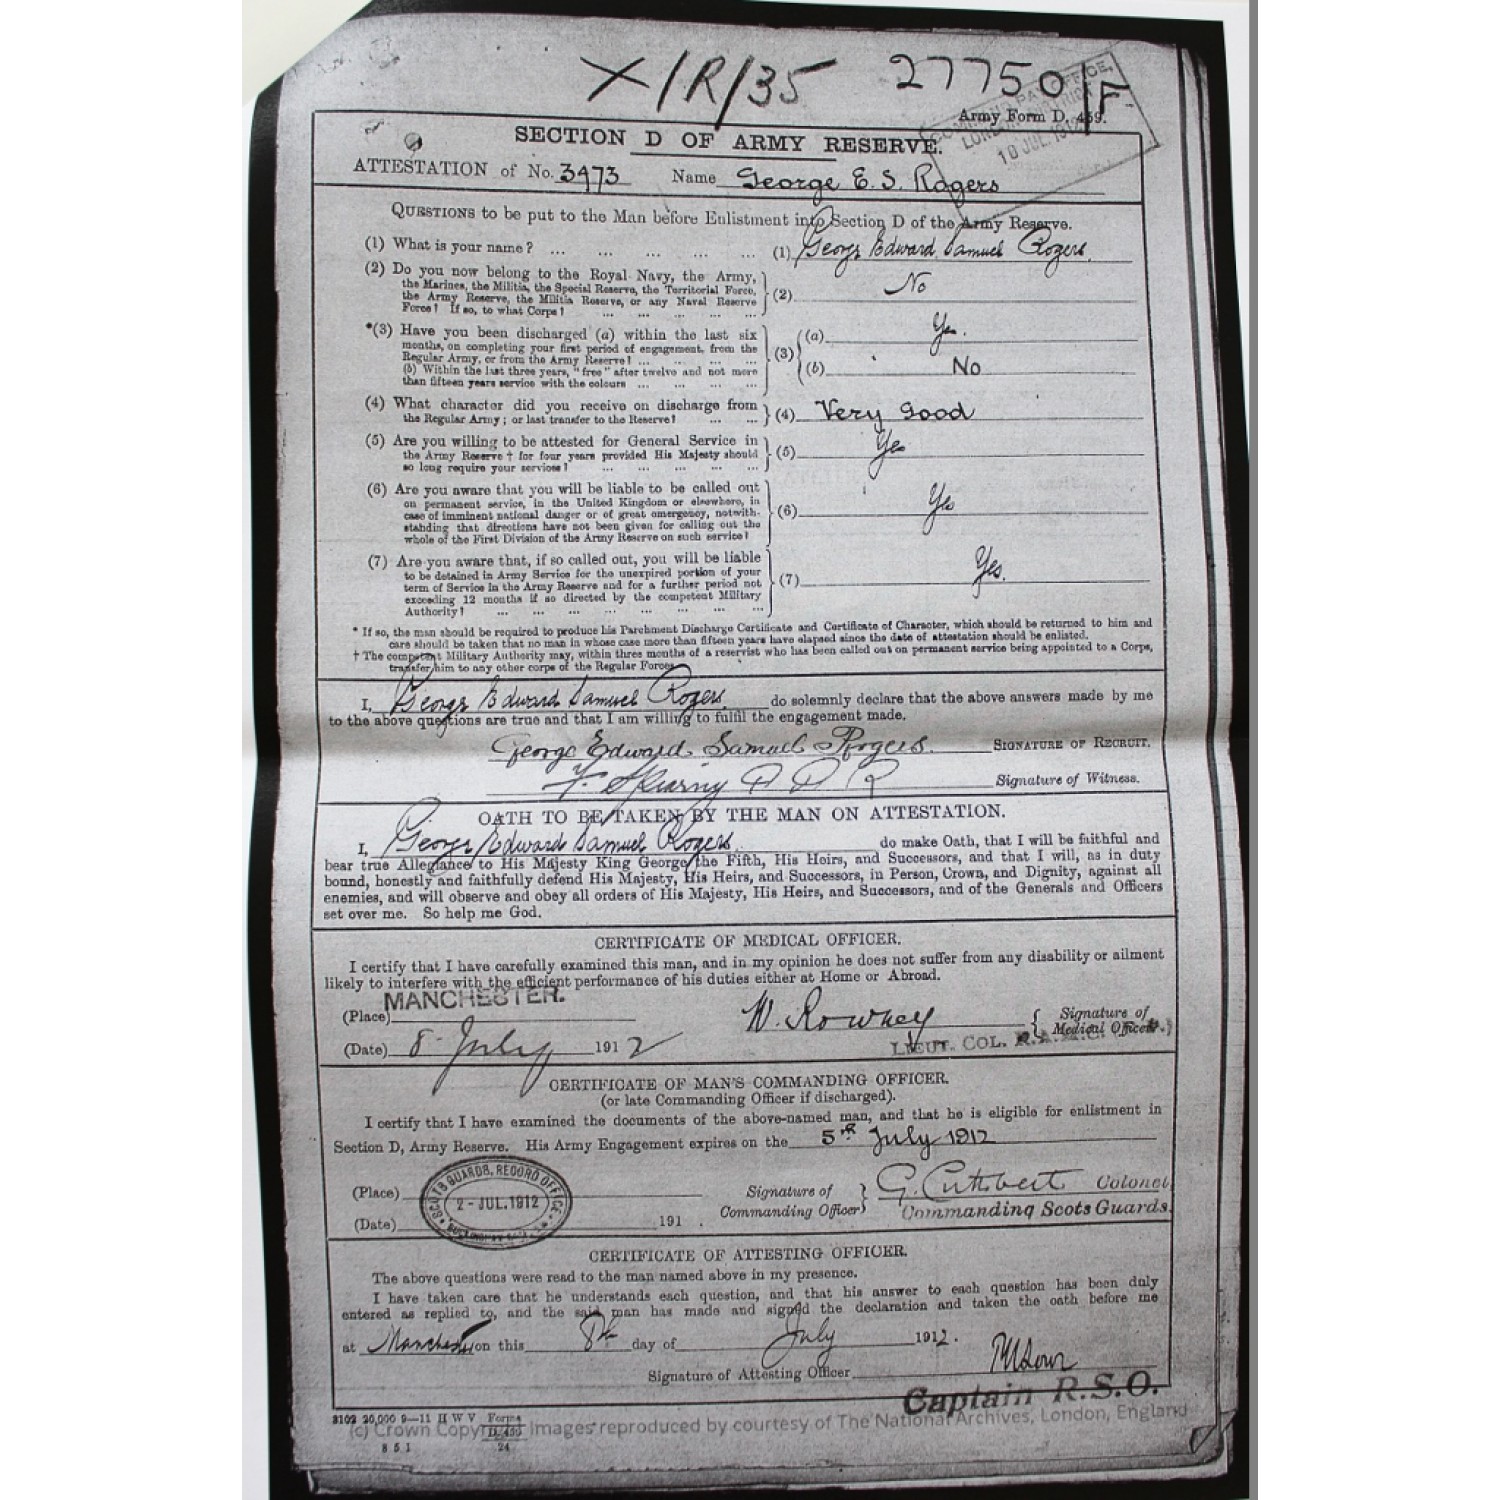 X/R/35 27750/F
Army Form D. 459.
COMMAND PAY OFFICE,
LONDON DISTRICT
10 JUL 1912
SECTION D OF ARMY RESERVE.
ATTESTATION of No. 3473 Name George E. S. Rogers
QUESTIONS to be put to the Man before Enlistment into Section D of the Army Reserve.
(1) What is your name? ... ... ... ... ... (1) George Edward Samuel Rogers.
(2) Do you now belong to the Royal Navy, the Army,
the Marines, the Militia, the Special Reserve, the Territorial Force,
the Army Reserve, the Militia Reserve, or any Naval Reserve
Force? If so, to what Corps? ... ... ... ... ... (2) No
*(3) Have you been discharged (a) within the last six
months, on completing your first period of engagement, from the
Regular Army, or from the Army Reserve? ... ... ... ...
(b) Within the last three years, "free" after twelve and not more
than fifteen years service with the colours ... ... ... ...
(3) (a) Yes.
(b) No
(4) What character did you receive on discharge from
the Regular Army; or last transfer to the Reserve? ... ... (4) Very good
(5) Are you willing to be attested for General Service in
the Army Reserve † for four years provided His Majesty should
so long require your services? ... ... ... ... ... (5) Yes
(6) Are you aware that you will be liable to be called out
on permanent service, in the United Kingdom or elsewhere, in
case of imminent national danger or of great emergency, notwith-
standing that directions have not been given for calling out the
whole of the First Division of the Army Reserve on such service?
(6) Yes
(7) Are you aware that, if so called out, you will be liable
to be detained in Army Service for the unexpired portion of your
term of Service in the Army Reserve and for a further period not
exceeding 12 months if so directed by the competent Military
Authority? ... ... ... ... ... ... ... ...
(7) Yes.
* If so, the man should be required to produce his Parchment Discharge Certificate and Certificate of Character, which should be returned to him and
care should be taken that no man in whose case more than fifteen years have elapsed since the date of attestation should be enlisted.
† The competent Military Authority may, within three months of a reservist who has been called out on permanent service being appointed to a Corps,
transfer him to any other corps of the Regular Forces.
I, George Edward Samuel Rogers. do solemnly declare that the above answers made by me
to the above questions are true and that I am willing to fulfil the engagement made.
George Edward Samuel Rogers. SIGNATURE OF RECRUIT.
Signature of Witness.
OATH TO BE TAKEN BY THE MAN ON ATTESTATION.
I, George Edward Samuel Rogers. do make Oath, that I will be faithful and
bear true Allegiance to His Majesty King George the Fifth, His Heirs, and Successors, and that I will, as in duty
bound, honestly and faithfully defend His Majesty, His Heirs, and Successors, in Person, Crown, and Dignity, against all
enemies, and will observe and obey all orders of His Majesty, His Heirs, and Successors, and of the Generals and Officers
set over me. So help me God.
CERTIFICATE OF MEDICAL OFFICER.
I certify that I have carefully examined this man, and in my opinion he does not suffer from any disability or ailment
likely to interfere with the efficient performance of his duties either at Home or Abroad.
(Place) MANCHESTER. W. Rowney Signature of
(Date) 8 July 1912 Medical Officer.
LIEUT. COL.
CERTIFICATE OF MAN'S COMMANDING OFFICER.
(or late Commanding Officer if discharged).
I certify that I have examined the documents of the above-named man, and that he is eligible for enlistment in
Section D, Army Reserve. His Army Engagement expires on the 5th July 1912
(Place)
SCOTS GUARDS, RECORD OFFICE.
2 - JUL. 1912
(Date) 191 .
Signature of
Commanding Officer
G. Cuthbert Colonel
Commanding Scots Guards.
CERTIFICATE OF ATTESTING OFFICER.
The above questions were read to the man named above in my presence.
I have taken care that he understands each question, and that his answer to each question has been duly
entered as replied to, and the said man has made and signed the declaration and taken the oath before me
at Manchester on this 8th day of July 1912.
Signature of Attesting Officer
Captain R.S.O.
3102 20,000 9—11 H W V Forms
D. 459
24
8 5 1
(c) Crown Copyright Images reproduced by courtesy of The National Archives, London, England